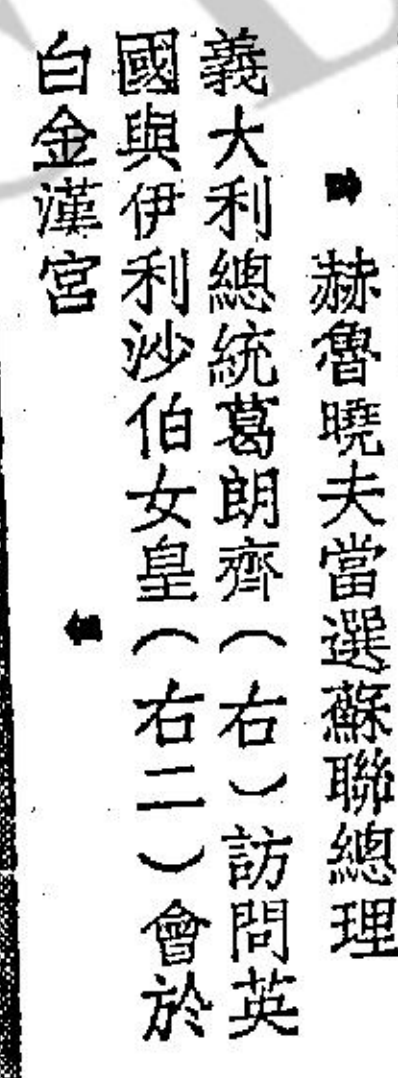 赫魯曉夫當選蘇聯總理
義大利總統葛朗齊（右）訪問英
國與伊利沙伯女皇（右二）會於
白金漢宮